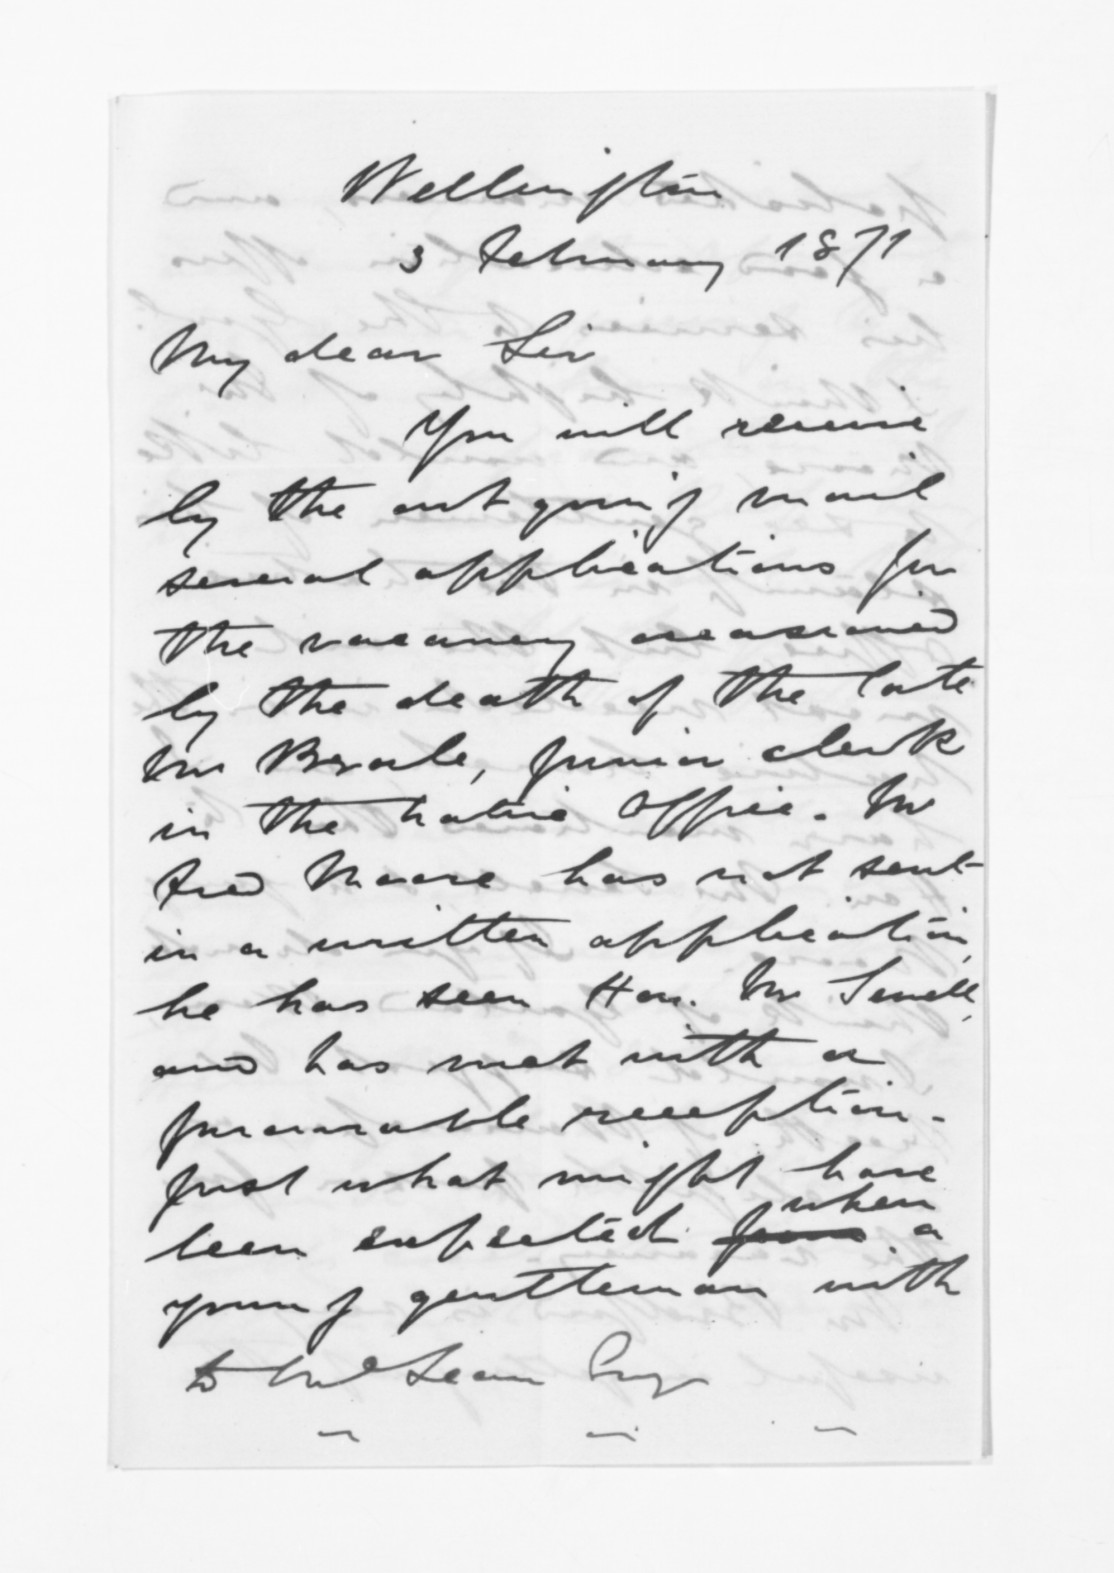 Wellington
3 February 1871
My dear Sir
You will receive
by the outgoing mail
several applications for
the vacancy occasioned
by the death of the late
Mr , junior clerk
in the Native Office. Mr
Fred Moore has not sent
in a written application,
he has seen Hon. Mr Sewell,
and has met with a
favourable reception -
Just what might have
been expected when a
young gentleman with
D McLean Esq